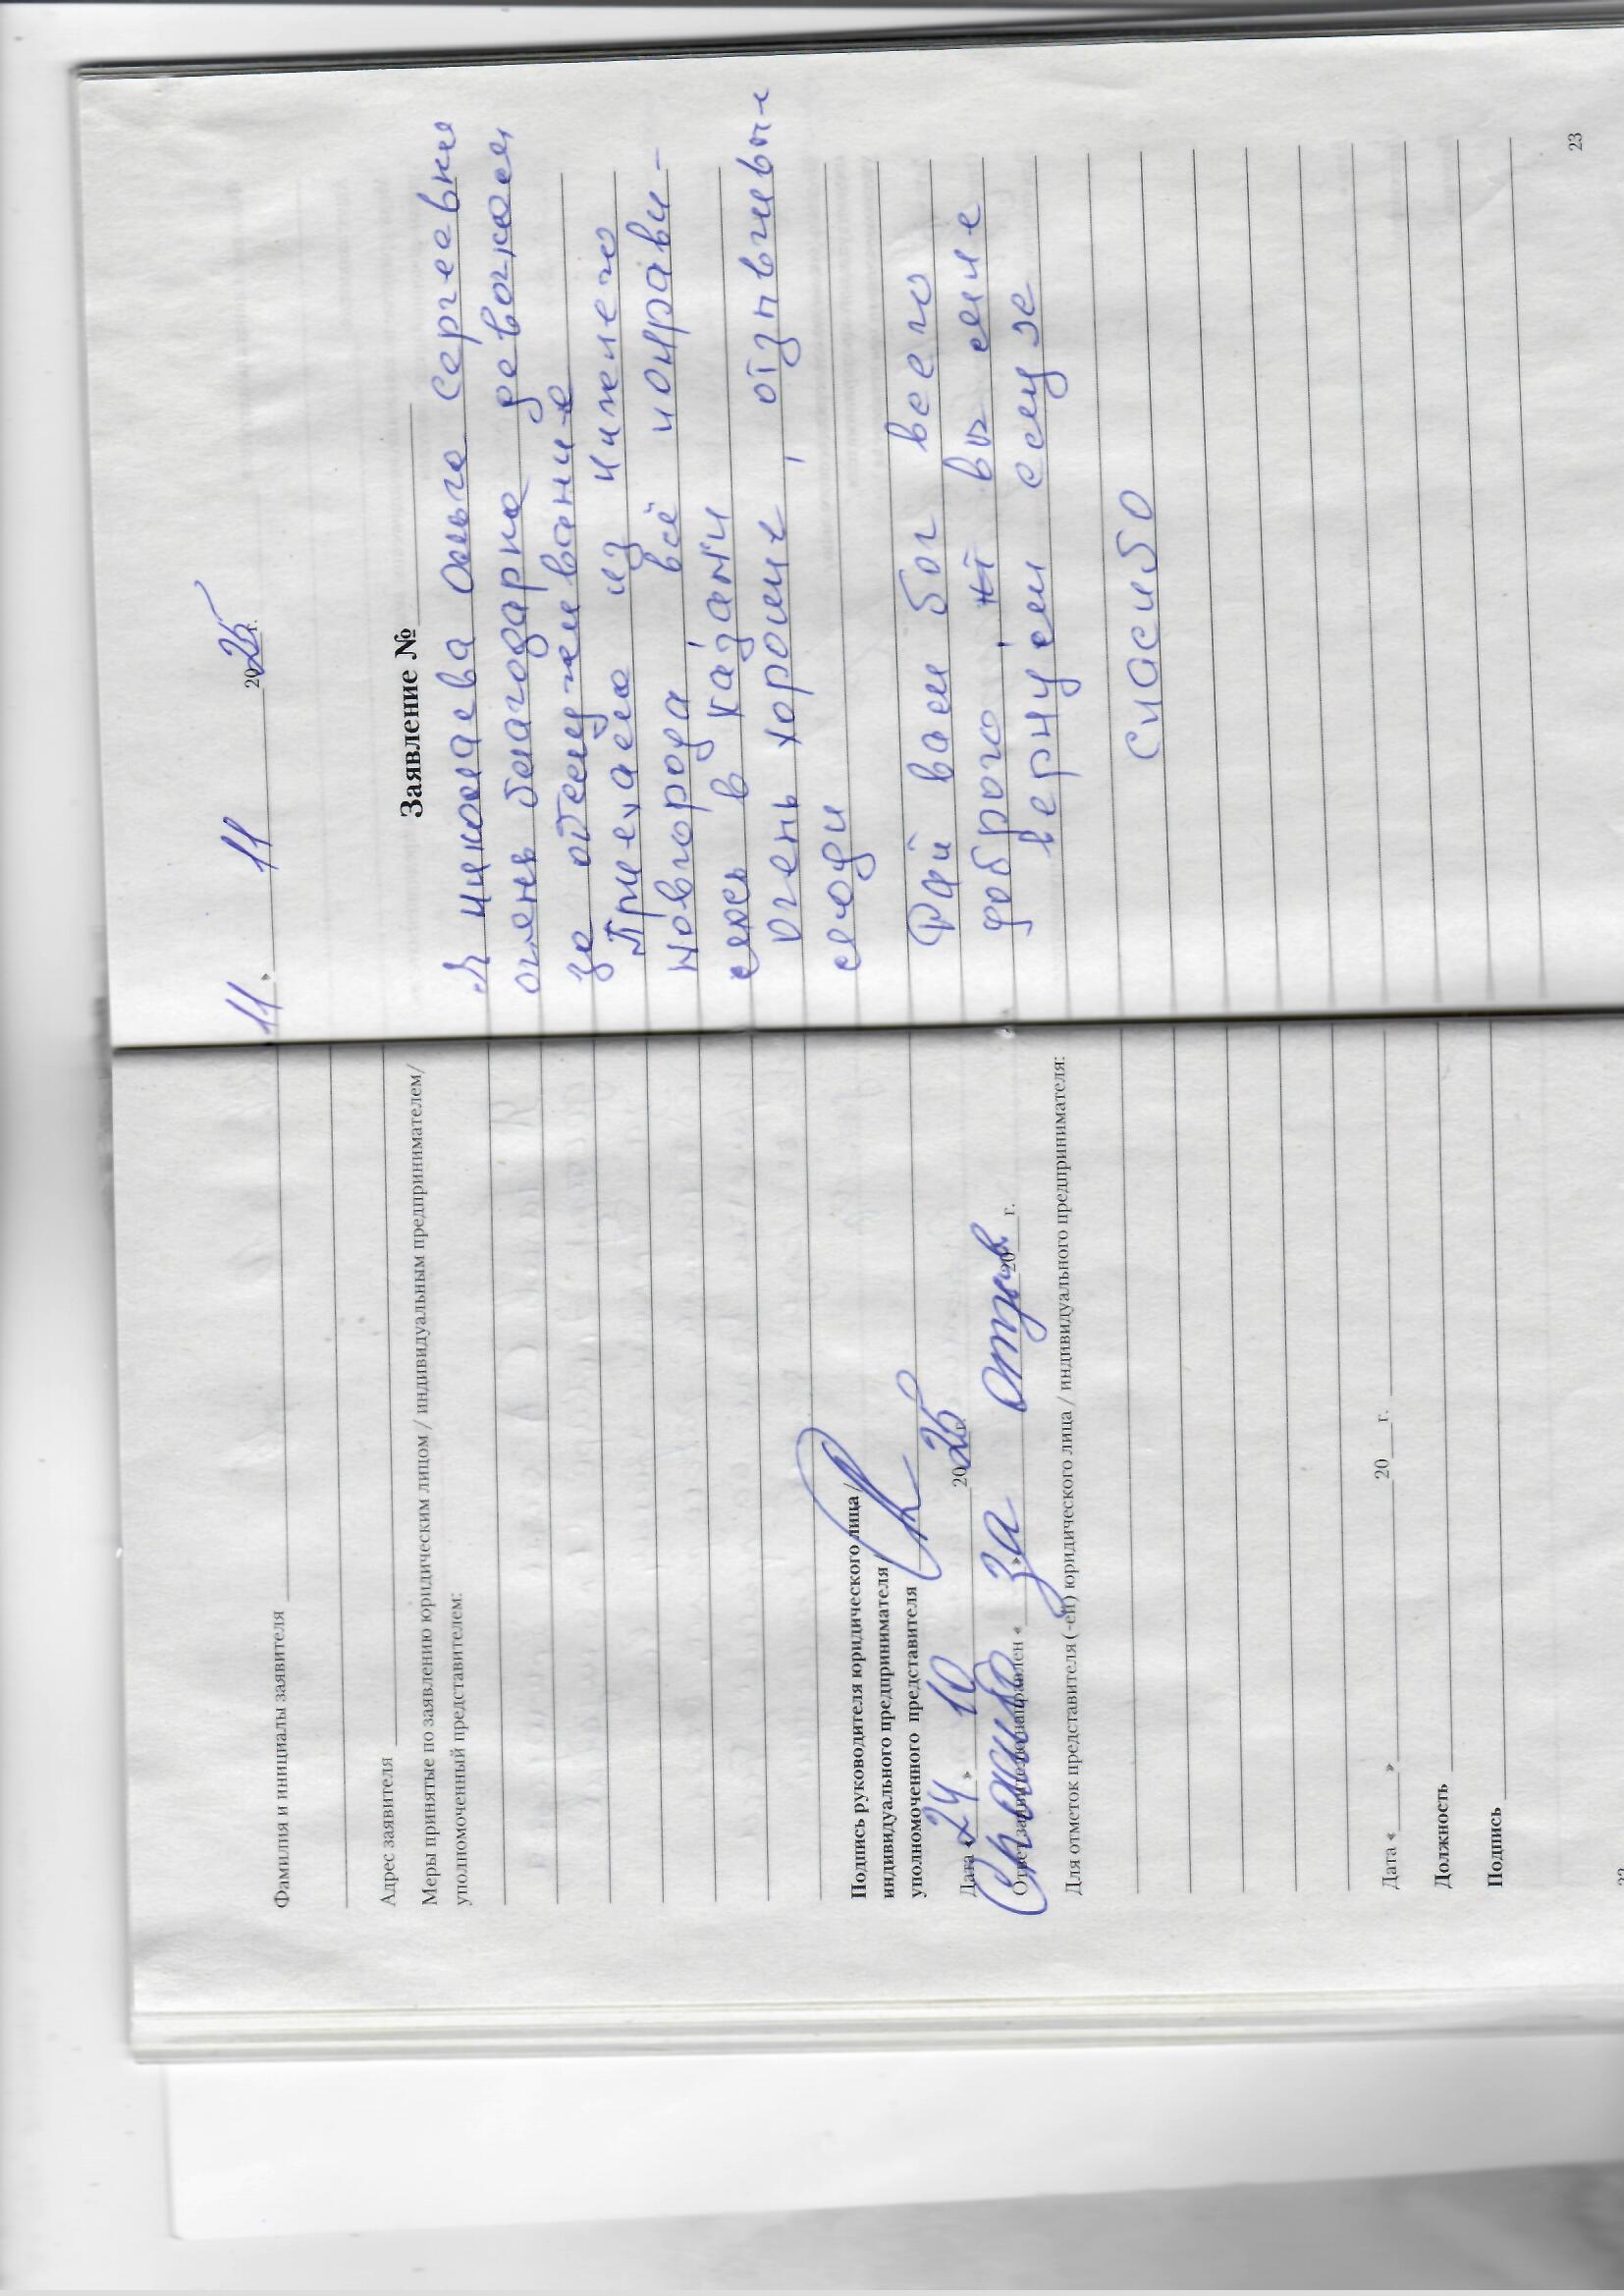 Фамилия и инициалы заявителя
Адрес заявителя
Меры принятые по заявлению юридическим лицом / индивидуальным предпринимателем/
уполномоченный представителем:
Подпись руководителя юридического лица /
индивидуального предпринимателя /
уполномоченного представителя
Дата «24» 10 2025 г.
Ответ заявителю направлен « » 20 г.
Спасибо за отзыв
Для отметок представителя (-ей) юридического лица / индивидуального предпринимателя:
Дата « » 20 г.
Должность
Подпись
11 » 11 2025 г.
Заявление №
Я николаева Ольга Сергеевна
очень благодарна девочкам
за обслуживание
Приехала из нижнего
новгорода всё понрави-
лось в казани
очень хорошие, отзывчивые
люди
Дай вам бог всего
доброго вы мне
вернуём ещу зе
спасибо
23